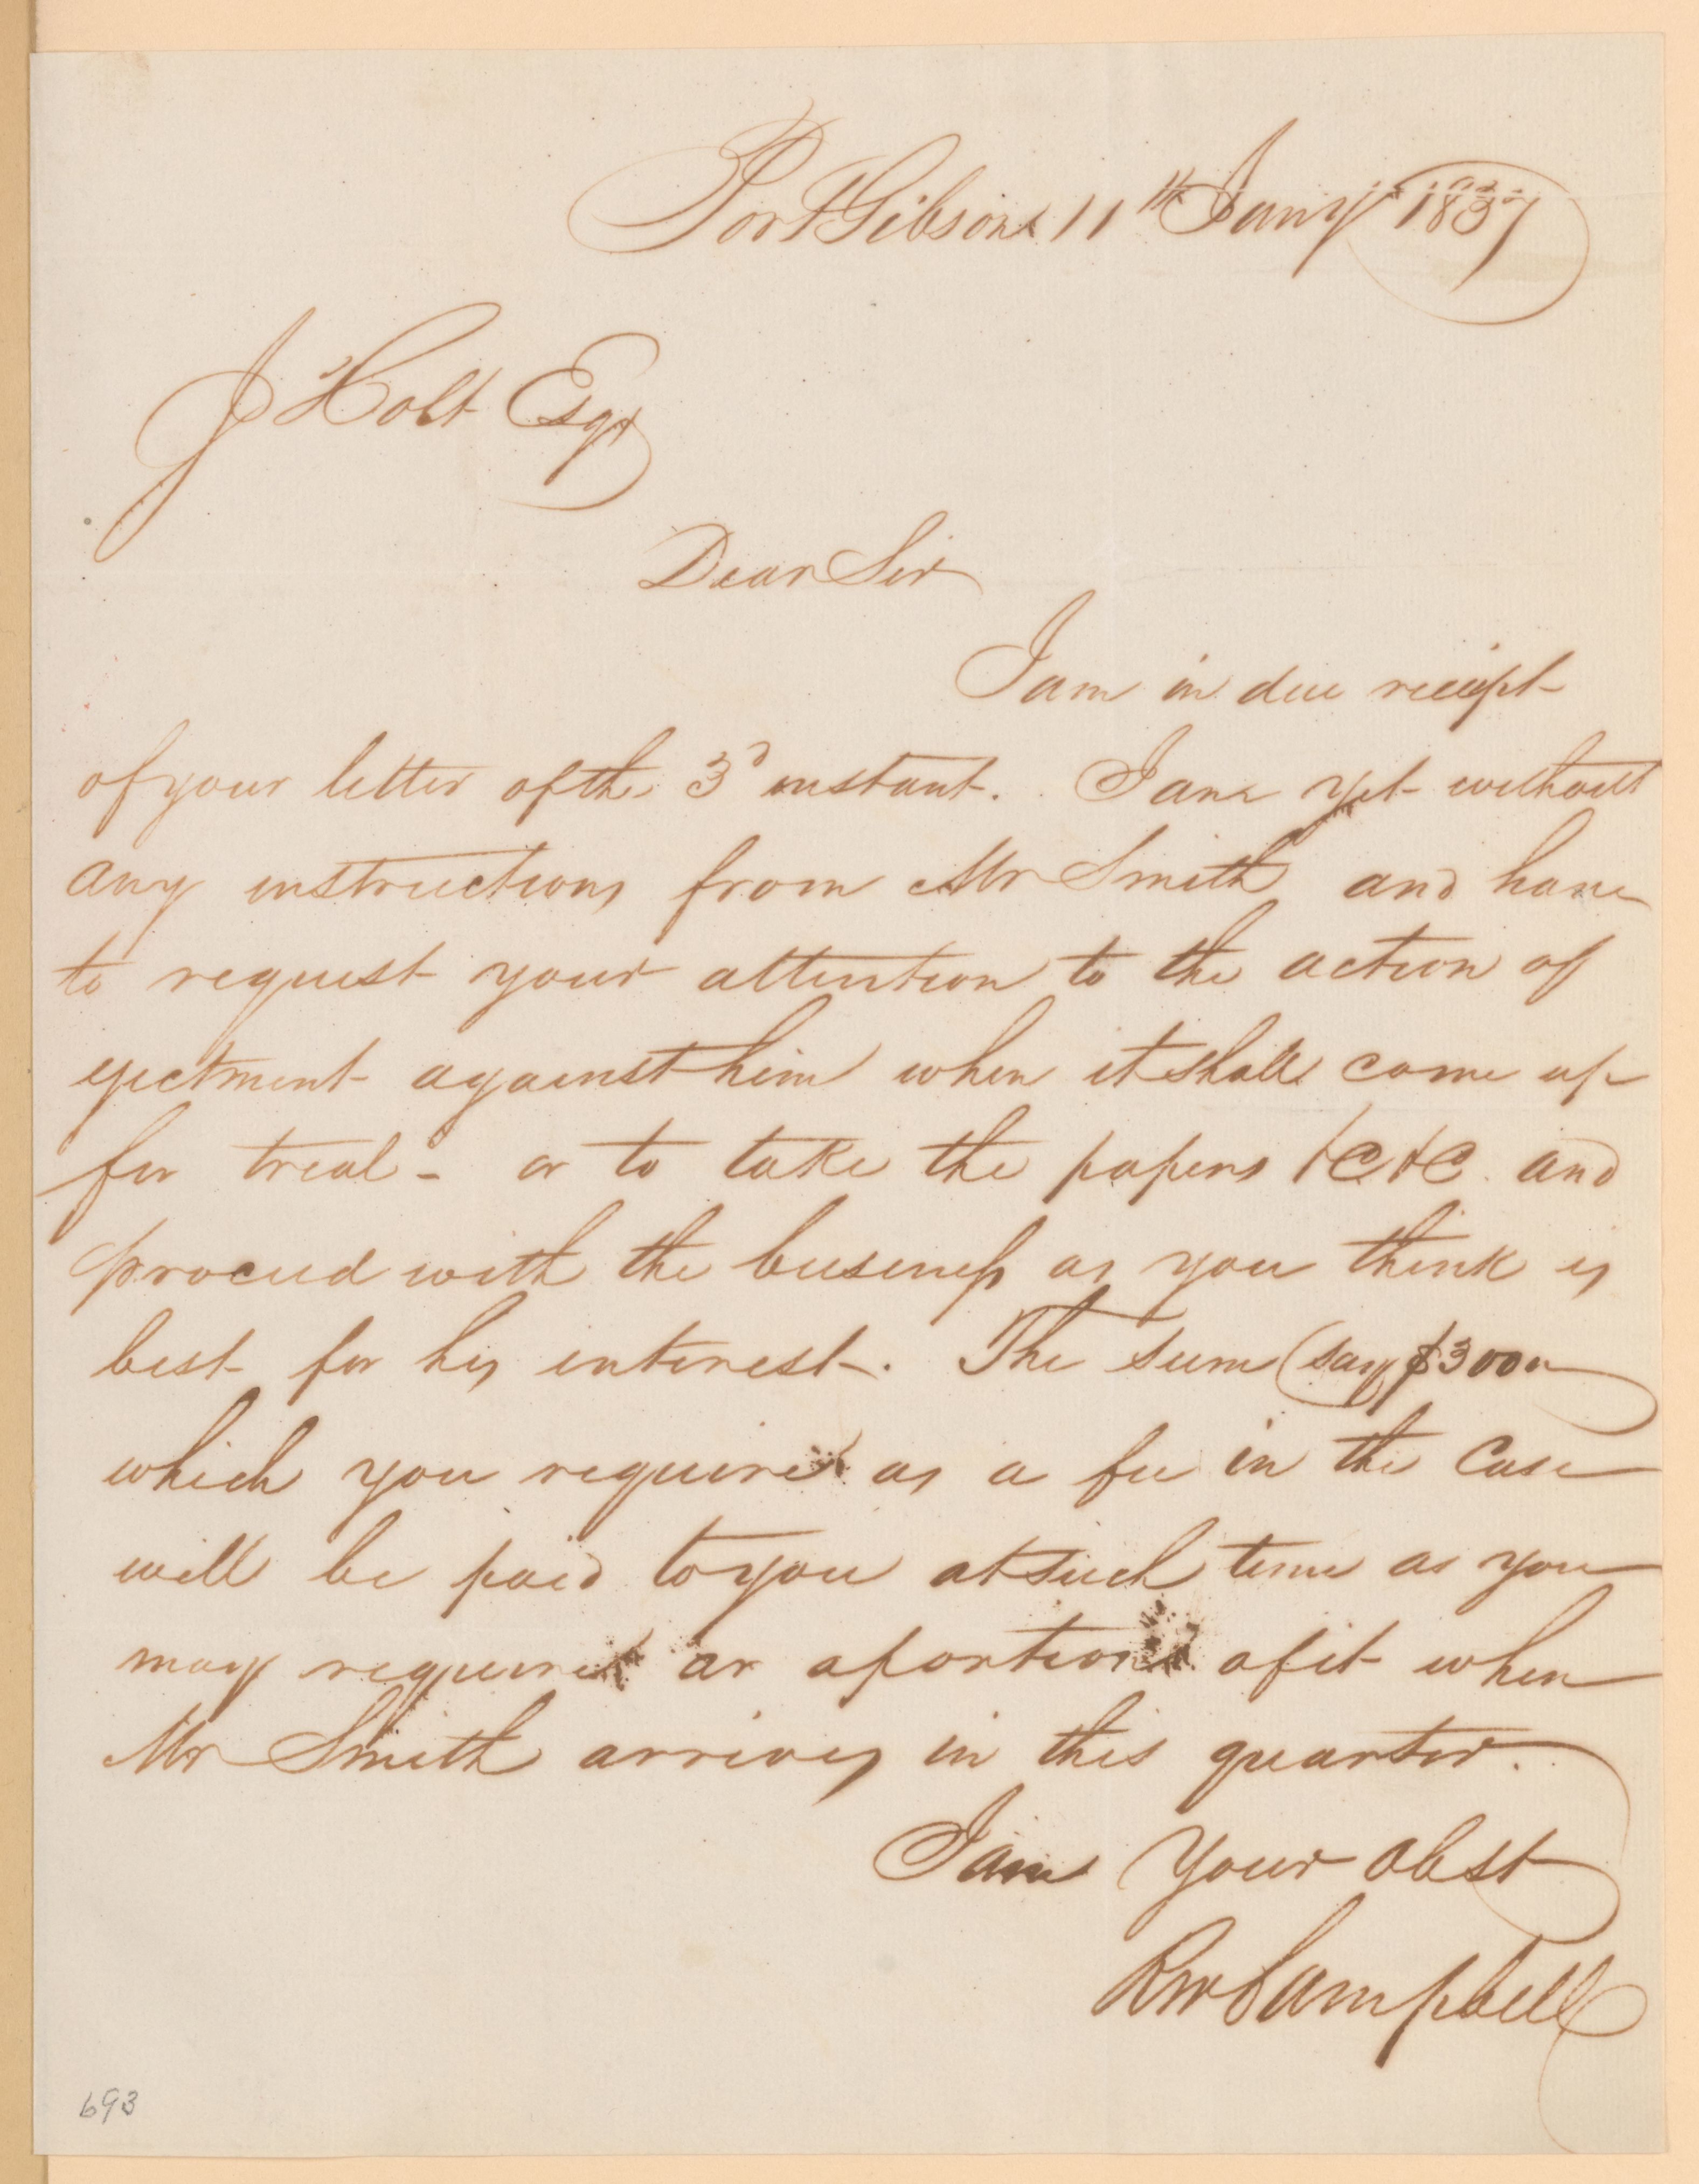 Port Gibson 11th Jany 1837
J Holt Esqr
Dear Sir
I am in due receipt
of your letter of the 3d instant. I am yet without
any instructions from Mr Smith and have
to request your attention to the action of
ejectment against him when it shall come up
for trial - or to take the papers &C &C. and
proceed with the business as you think is
best for his interest. The sum (say $300
which you require as a fee in the Case
will be paid to you at such time as you
may require or a portion of it when
Mr Smith arrives in this quarter.
I am Your Obst
RW Campbell
693